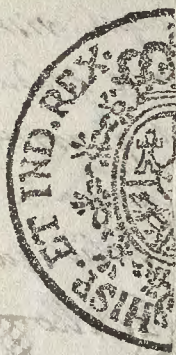 HISP. ET IND. REX